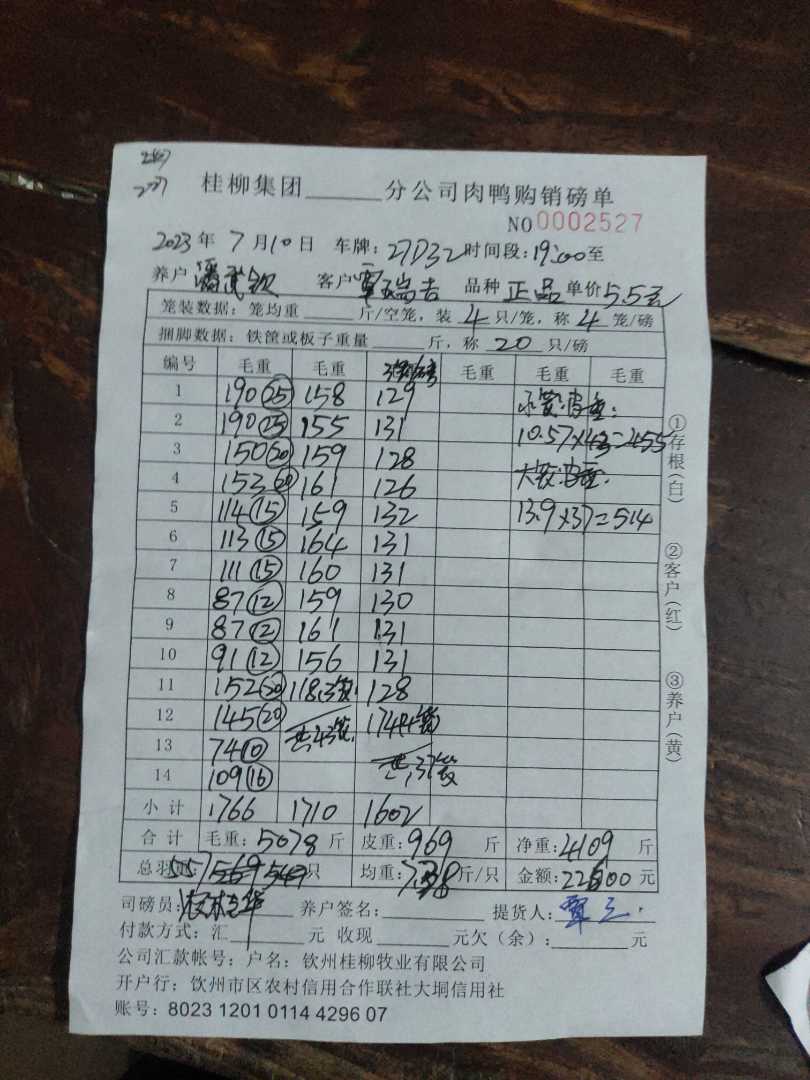 桂柳集团______分公司肉鸭购销磅单
NO 0002527
2023年 7月10日 车牌: 27D32 时间段: 19:00至
养户 潘武钦 客户 覃瑞吉 品种 正品 单价 5.5元
笼装数据: 笼均重______斤/空笼, 装 4 只/笼, 称 4 笼/磅
捆脚数据: 铁筐或板子重量______斤, 称 20 只/磅
编号 毛重 毛重 毛重 毛重 毛重
1 190 (25) 158 129
2 190 (25) 155 131 10.57×43=455
3 150 (20) 159 128
4 153 (20) 161 126
5 114 (15) 159 132 13.9×37=514
6 113 (15) 164 131
7 111 (15) 160 131
8 87 (12) 159 130
9 87 (12) 161 131
10 91 (12) 156 131
11 152 (20) 118 128
12 145 (20) 174
13 74 (10)
14 109 (16)
小计 1766 1710 1602
合计 毛重: 5078 斤 皮重: 969 斤 净重: 4109 斤
557 569 549 只 均重: 斤/只 金额: 22600 元
司磅员: 养户签名: 提货人:
付款方式: 汇______元 收现______元欠(余): ______元
公司汇款帐号: 户名: 钦州桂柳牧业有限公司
开户行: 钦州市区农村信用合作联社大垌信用社
账号: 8023 1201 0114 4296 07
①存根(白)
②客户(红)
③养户(黄)